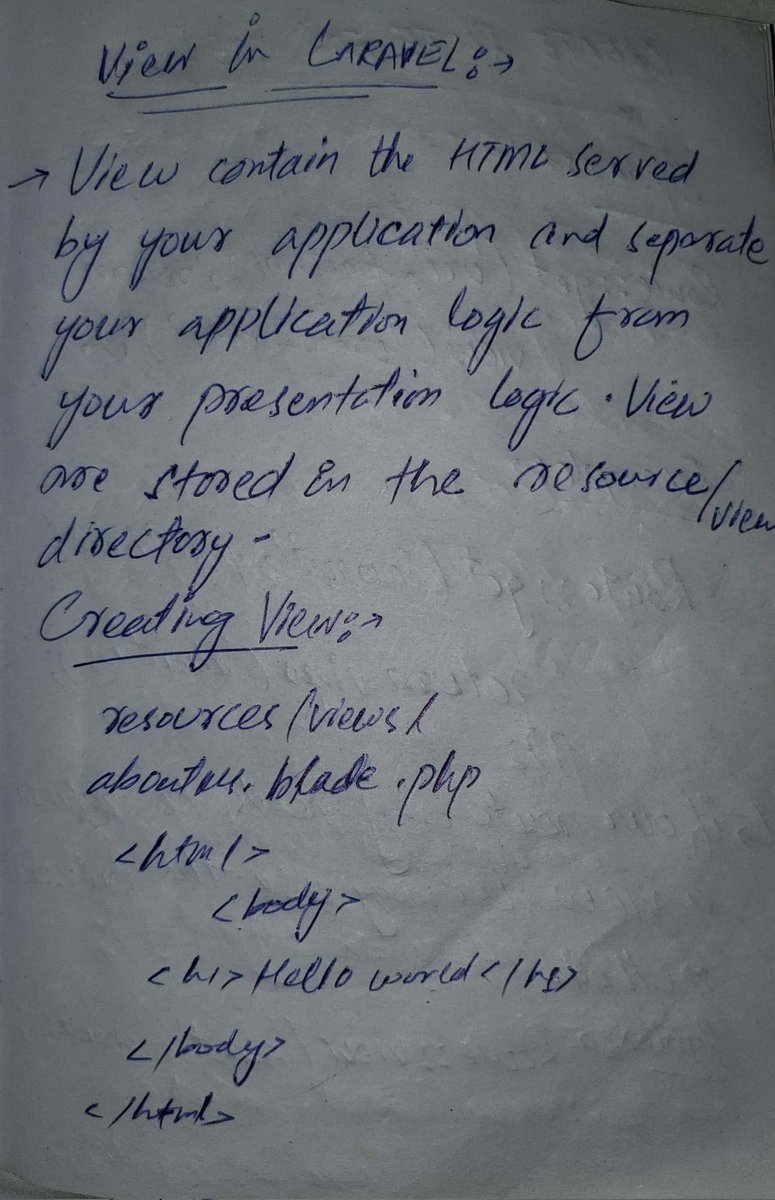 View in LARAVEL:→
→ View contain the HTML served
by your application and separate
your application logic from
your presentation logic. View
are stored in the resource/view
directory-
Creating View:→
resources/views/
aboutus.blade.php
<html>
<body>
<h1>Hello world</h1>
</body>
</html>